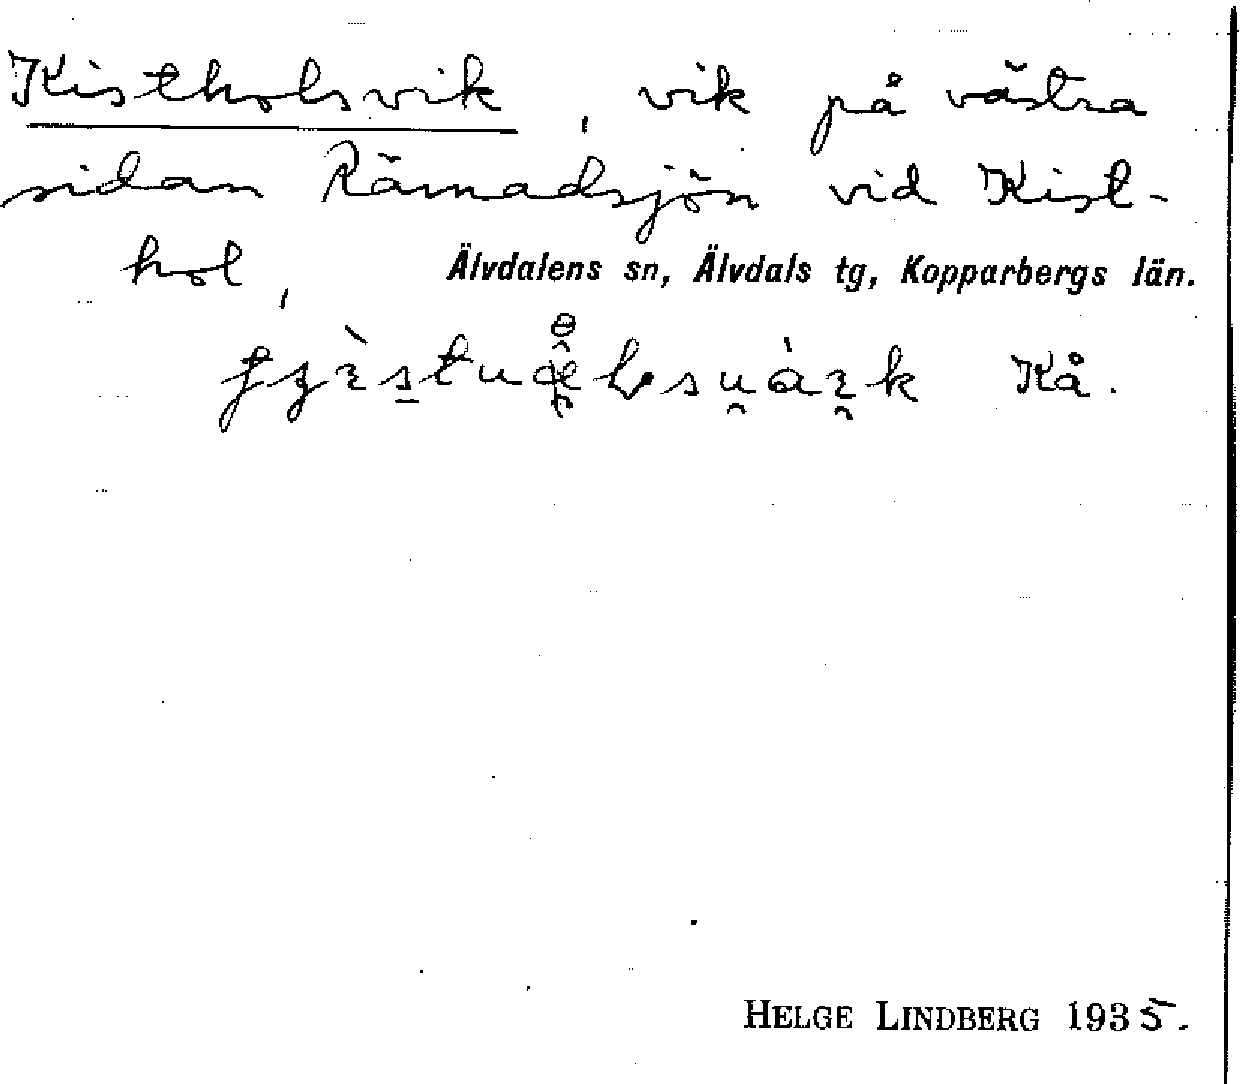 Kistholsvik, vik på västra
sidan Rämadsjön vid Kist-
hol,
Älvdalens sn, Älvdals tg, Kopparbergs län.
Kå.
HELGE LINDBERG 1935.